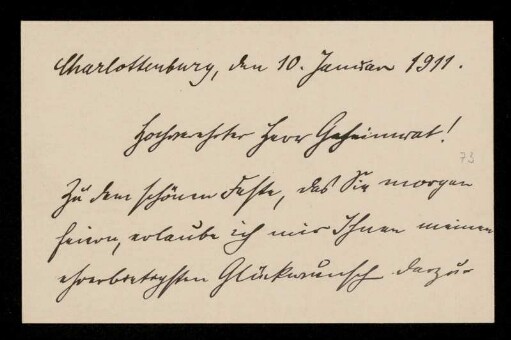 Charlottenburg, den 10. Januar 1911.
Hochverehrter Herr Geheimrat!
73
Zu dem schönen Feste, das Sie morgen
feiern, erlaube ich mir Ihnen meinen
ehrerbietigsten Glückwunsch darzu-